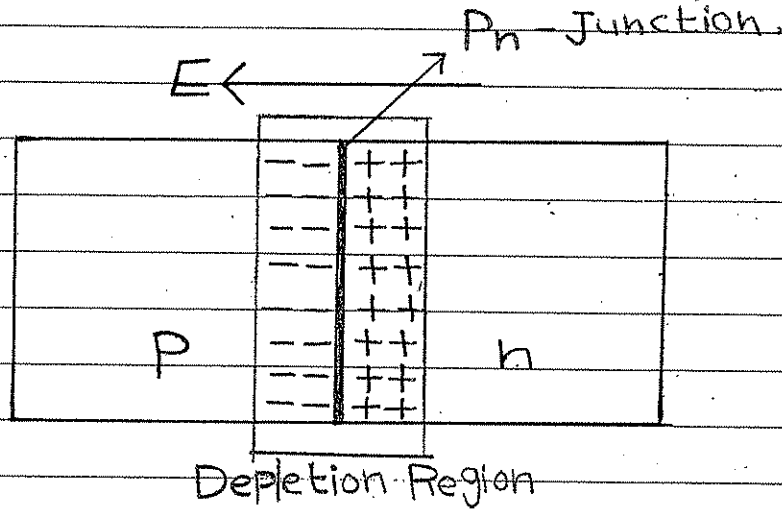 Pn - Junction.
E
-- ++
-- ++
-- ++
-- ++
-- ++
-- ++
-- ++
-- ++
P
n
Depletion Region